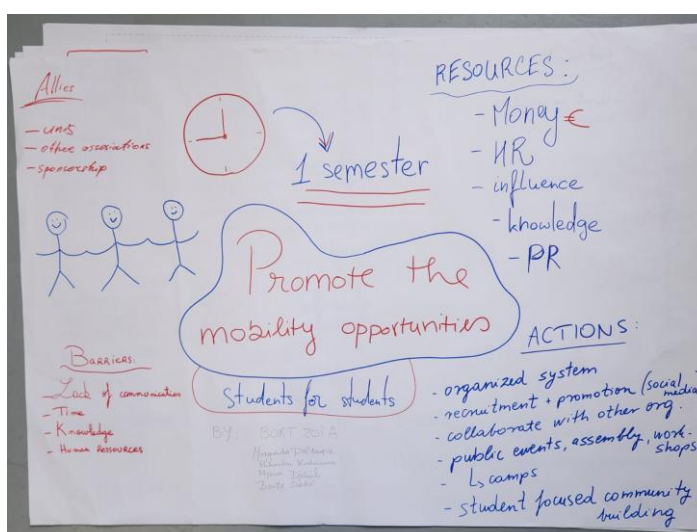 Allies
- UNIS
- other associations
- sponsorship
1 semester
RESOURCES:
- Money €
- HR
- influence
- knowledge
- PR
Promote the
mobility opportunities
Students for students
BARRIERS:
- Lack of communication
- Time
- Knowledge
- Human Ressources
ACTIONS:
- organized system
- recruitment + promotion (social media)
- collaborate with other org.
- public events, assembly, work-
shops
↳ camps
- student focused community
building
BY: